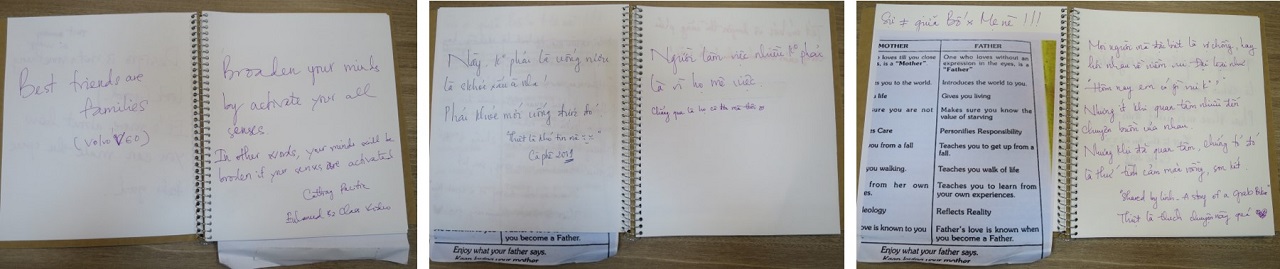 Best friends are
families
(Volvo V60)
Broaden your minds
by activate your all
senses.
In other words, your minds will be
broaden if your senses are activated
Này, k° phải là uống nhiều
là khỏe đâu nha
Phải khỏe mới uống được đó.
Cà phê 2019
you become a Father.
Enjoy what your father says.
Người làm việc nhiều k° phải
là vì họ mê việc
Sự ≠ giữa Bố x Mẹ nè !!!
MOTHER
FATHER
loves till you close
is a "Mother"
One who loves without an
expression in the eyes, is a
"Father"
you to the world.
Introduces the world to you.
life
Gives you living
sure you are not
Makes sure you know the
value of starving
Care
Personifies Responsibility
you from a fall
Teaches you to get up from a
fall.
you walking.
Teaches you walk of life
from her own
Teaches you to learn from
your own experiences.
Reflects Reality
ove is known to you
Father's love is known when
you become a Father.
Enjoy what your father says.
Mọi người mà đã biết là vợ chồng, hay
hỏi nhau về niềm vui. Đại loại như
"Hôm nay em có gì vui k° ?"
Nhưng ít khi quan tâm nhiều đến
chuyện buồn của nhau.
Nhưng khi đã quan tâm, chứng tỏ đó
là thứ tình cảm mãi vững, son sắt.
"Shared by Linh - A story of a Grab Biker"
Thiệt là thích chuyện này quá